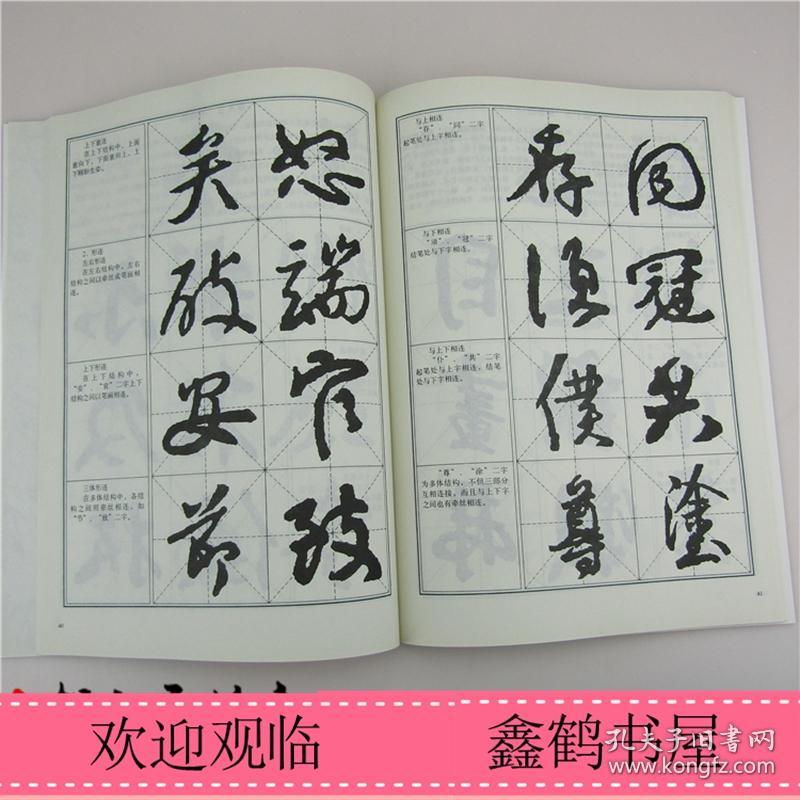 上下意连
在上下结构中，上画
意向下，下画意向上，上
下顾盼生姿。
矣 怒
2、形连
左右形连
在左右结构中，左右
结构之间以牵丝或笔画相
连。
破 端
上下形连
在上下结构中，
“安”、“官”二字上下
结构之间以笔画相连。
安 官
三体形连
在多体结构中，各结
构之间用牵丝相连，如
“节”、“致”二字。
节 致
40
与上相连
“存”、“同”二字
起笔处与上字相连。
存 同
与下相连
“须”、“冠”二字
结笔处与下字相连。
须 冠
与上下相连
“仆”、“共”二字
起笔处与上字相连，结笔
处与下字相连。
僕 共
“尊”、“涂”二字
为多体结构，不但三部分
互相连接，而且与上下字
之间也有牵丝相连。
尊 塗
41
欢迎观临
鑫鹤书屋
孔夫子旧书网
www.kongfz.com